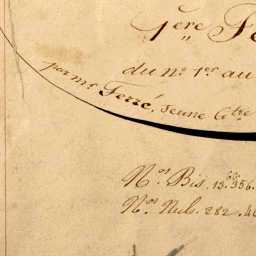 1ère Fe
du no. 1er au
par mr Ferré, Jeune Cte
Nos Bis. 13. 356.
Nos Nuls. 282.